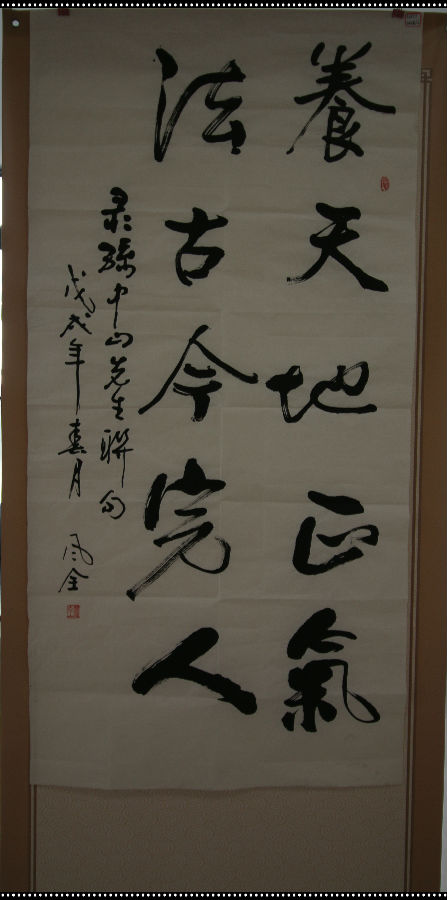 養天地正氣
法古今完人
录孫中山先生聯句
戊戌年春月 风全